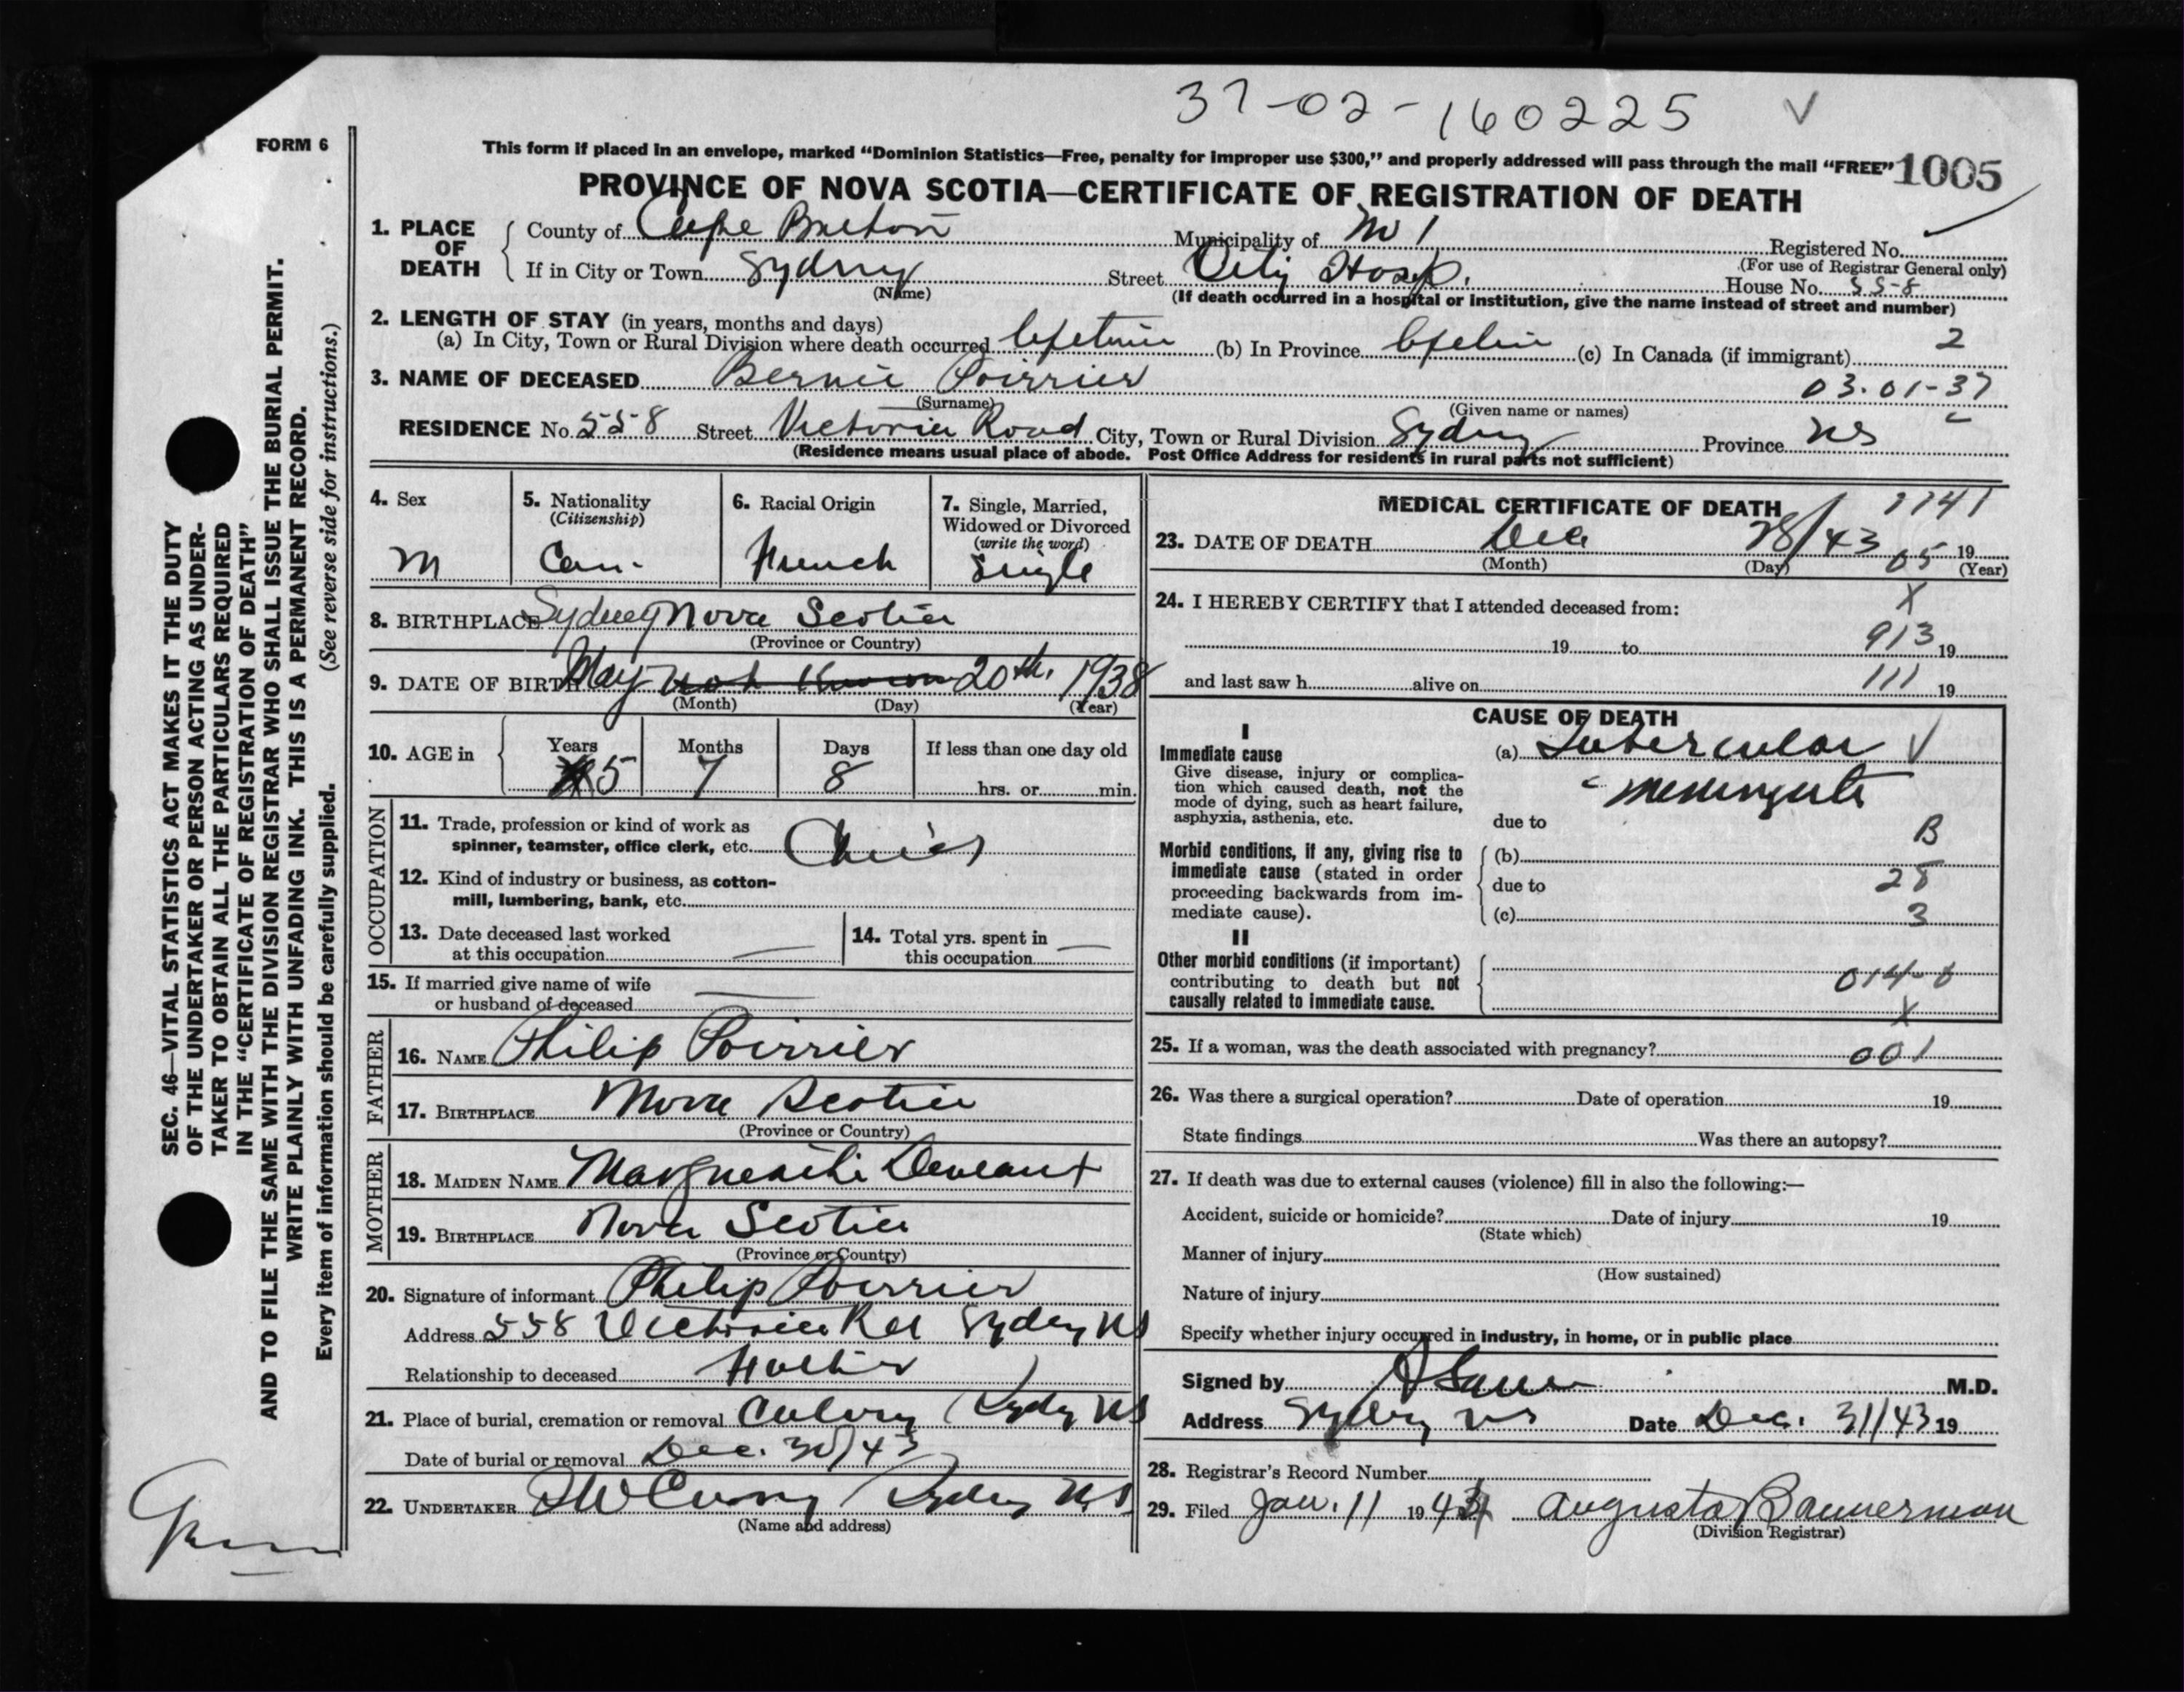 37-02-160225 V
FORM 6
This form if placed in an envelope, marked "Dominion Statistics—Free, penalty for improper use $300," and properly addressed will pass through the mail "FREE" 1005
PROVINCE OF NOVA SCOTIA—CERTIFICATE OF REGISTRATION OF DEATH
1. PLACE OF DEATH County of Cape Breton Municipality of Registered No.
(For use of Registrar General only)
If in City or Town Sydney Street City Hosp. House No. 558
(Name) (If death occurred in a hospital or institution, give the name instead of street and number)
2. LENGTH OF STAY (in years, months and days) 2
(a) In City, Town or Rural Division where death occurred lifetime (b) In Province lifetime (c) In Canada (if immigrant)
3. NAME OF DECEASED Bernie Poirrier 03.01-37
(Surname) (Given name or names)
RESIDENCE No. 558 Street Victoria Road City, Town or Rural Division Sydney Province NS
(Residence means usual place of abode. Post Office Address for residents in rural parts not sufficient)
4. Sex M
5. Nationality (Citizenship) Can.
6. Racial Origin French
7. Single, Married, Widowed or Divorced (write the word) Single
8. BIRTHPLACE Sydney Nova Scotia
(Province or Country)
9. DATE OF BIRTH May not known 20th. 1938
(Month) (Day) (Year)
10. AGE in Years 5 Months 7 Days 8 If less than one day old
hrs. or min.
OCCUPATION
11. Trade, profession or kind of work as
spinner, teamster, office clerk, etc.
12. Kind of industry or business, as cotton-
mill, lumbering, bank, etc.
13. Date deceased last worked
at this occupation —
14. Total yrs. spent in
this occupation —
15. If married give name of wife
or husband of deceased —
FATHER
16. NAME Philip Poirrier
17. BIRTHPLACE Nova Scotia
(Province or Country)
MOTHER
18. MAIDEN NAME Marguerite Deveaux
19. BIRTHPLACE Nova Scotia
(Province or Country)
20. Signature of informant Philip Poirrier
Address 558 Victoria Rd Sydney NS
Relationship to deceased Father
21. Place of burial, cremation or removal Calvary Sydney NS
Date of burial or removal Dec. 30/43
22. UNDERTAKER Curry Sydney N.S
(Name and address)
MEDICAL CERTIFICATE OF DEATH 1141
23. DATE OF DEATH Dec 28/43 05 19
(Month) (Day) (Year)
24. I HEREBY CERTIFY that I attended deceased from: X
19 to 913 19
and last saw h alive on 111 19
CAUSE OF DEATH
I
Immediate cause
Give disease, injury or complica-
tion which caused death, not the
mode of dying, such as heart failure,
asphyxia, asthenia, etc.
(a) Tubercular V
Meningitis
due to B
Morbid conditions, if any, giving rise to
immediate cause (stated in order
proceeding backwards from im-
mediate cause).
(b)
due to 28
(c) 3
II
Other morbid conditions (if important)
contributing to death but not
causally related to immediate cause.
014-0
X
25. If a woman, was the death associated with pregnancy? 001
26. Was there a surgical operation? Date of operation 19
State findings Was there an autopsy?
27. If death was due to external causes (violence) fill in also the following:—
Accident, suicide or homicide? Date of injury 19
(State which)
Manner of injury
(How sustained)
Nature of injury
Specify whether injury occurred in industry, in home, or in public place
Signed by M.D.
Address Sydney NS Date Dec. 31/43 19
28. Registrar's Record Number
29. Filed Jan. 11 1944 Augusta Bannerman
(Division Registrar)
SEC. 46—VITAL STATISTICS ACT MAKES IT THE DUTY
OF THE UNDERTAKER OR PERSON ACTING AS UNDER-
TAKER TO OBTAIN ALL THE PARTICULARS REQUIRED
IN THE "CERTIFICATE OF REGISTRATION OF DEATH"
AND TO FILE THE SAME WITH THE DIVISION REGISTRAR WHO SHALL ISSUE THE BURIAL PERMIT.
WRITE PLAINLY WITH UNFADING INK. THIS IS A PERMANENT RECORD.
Every item of information should be carefully supplied. (See reverse side for instructions.)